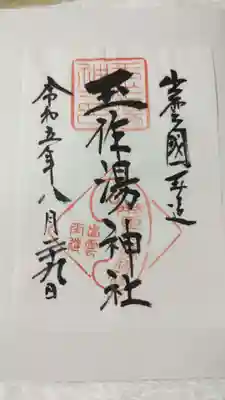 出雲國玉造
玉作湯神社
令和五年八月廿九日
出雲
玉造